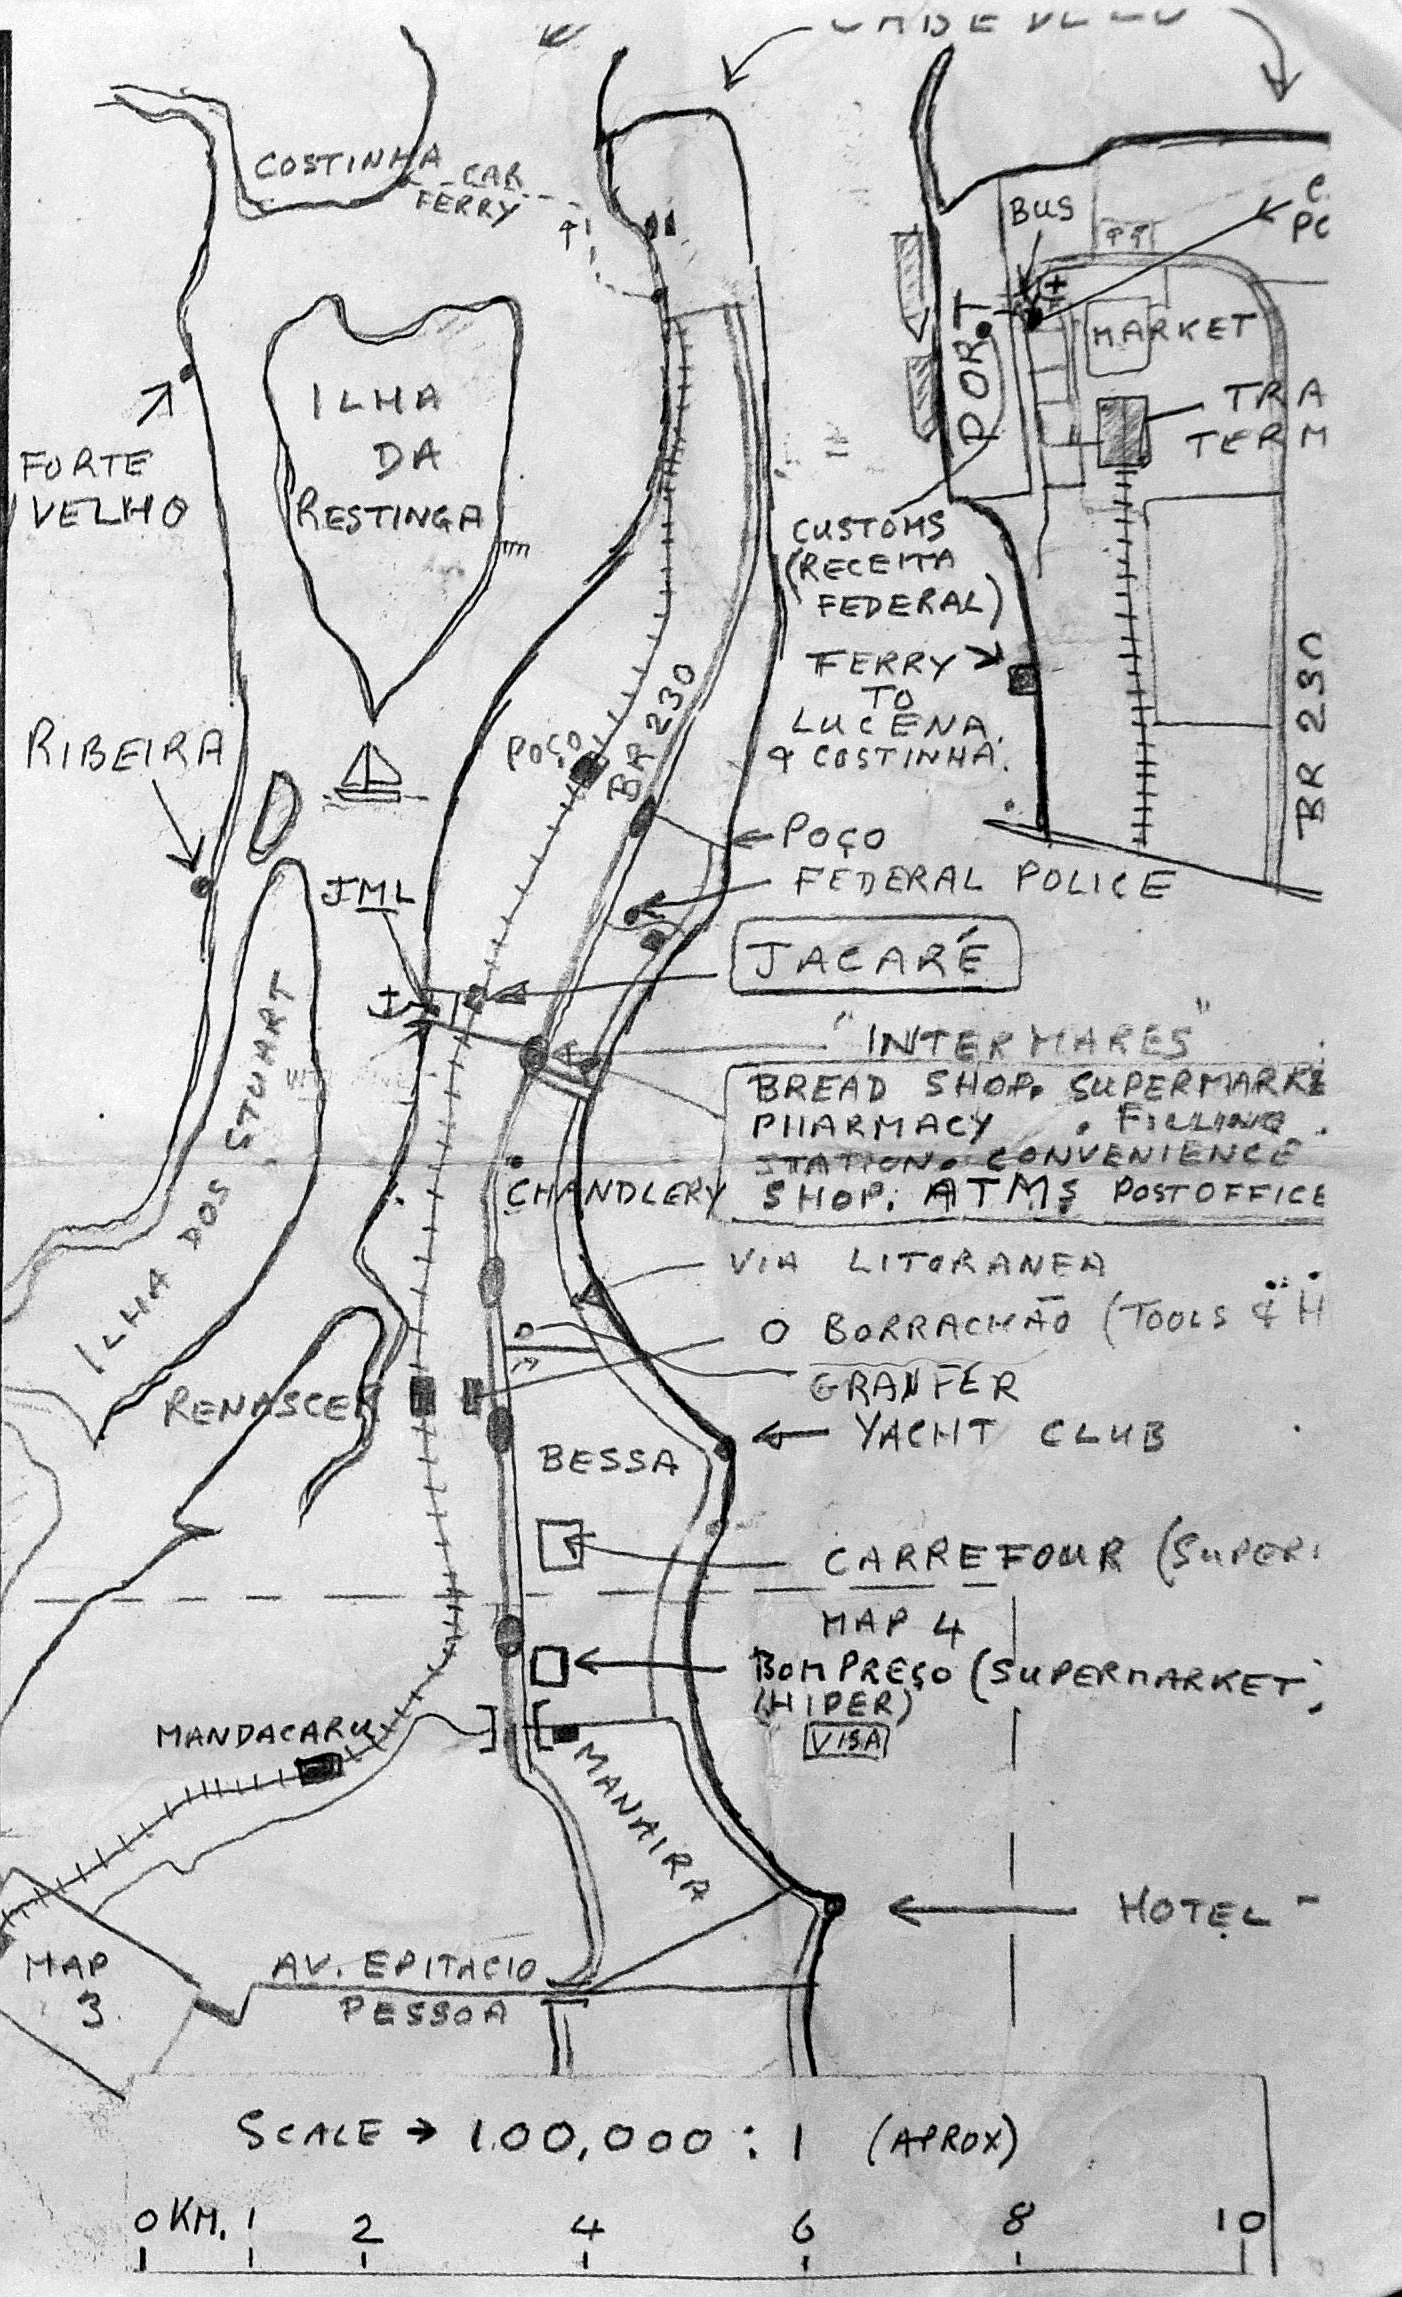 COSTINHA
CAR
FERRY
BUS
C.
PC
PORT
MARKET
ILHA
DA
RESTINGA
TRA
TERM
FORTE
VELHO
CUSTOMS
(RECEITA
FEDERAL)
FERRY
TO
LUCENA.
& COSTINHA.
BR 230
BR 230
POÇO
RIBEIRA
JML
POÇO
FEDERAL POLICE
JACARÉ
"INTERMARES"
BREAD SHOP. SUPERMARKE
PHARMACY . FILLING .
STATION. CONVENIENCE
SHOP. ATMS POSTOFFICE
CHANDLERY
ILHA DOS STUART
VIA LITORANEA
O BORRACHÃO (TOOLS & H
GRANFER
RENASCER
YACHT CLUB
BESSA
CARREFOUR (SUPER
MAP 4
BOMPREÇO (SUPERMARKET
(HIPER)
VISA
MANDACARU
MANAIRA
HOTEL -
MAP
3.
AV. EPITACIO
PESSOA
SCALE → 1.00,000 : 1 (APROX)
0 KM. 1 2 4 6 8 10